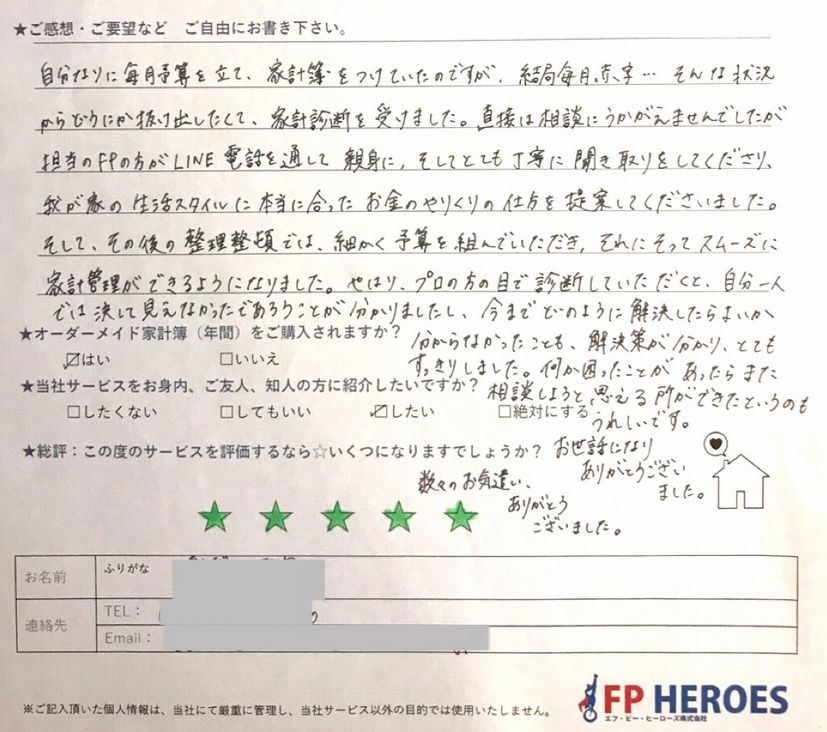 ★ご感想・ご要望など　ご自由にお書き下さい。
自分なりに毎月予算を立て、家計簿をつけていたのですが、結局毎月赤字… そんな状況
からどうにか抜け出したくて、家計診断を受けました。直接は相談にうかがえませんでしたが
担当のFPの方がLINE電話を通して親身に、そしてとても丁寧に聞き取りをしてくださり、
我が家の生活スタイルに本当に合ったお金のやりくりの仕方を提案してくださいました。
そして、その後の整理整頓では、細かく予算を組んでいただき、それにそってスムーズに
家計管理ができるようになりました。やはり、プロの方の目で診断していただくと、自分一人
では決して見えなかったであろうことが分かりましたし、今までどのように解決したらよいか
分からなかったことも、解決策が分かり、とても
すっきりしました。何か困ったことがあったらまた
相談しようと思える所ができたというのも
うれしいです。
★オーダーメイド家計簿（年間）をご購入されますか？
☑はい　□いいえ
★当社サービスをお身内、ご友人、知人の方に紹介したいですか？
□したくない　□してもいい　☑したい　□絶対にする
★総評：この度のサービスを評価するなら☆いくつになりますでしょうか？
お世話になり
ありがとうござい
ました。
数々のお気遣い、
ありがとう
ございました。
★ ★ ★ ★ ★
お名前
ふりがな
連絡先
TEL：
Email：
※ご記入頂いた個人情報は、当社にて厳重に管理し、当社サービス以外の目的では使用いたしません。
FP HEROES
エフ・ピー・ヒーローズ株式会社